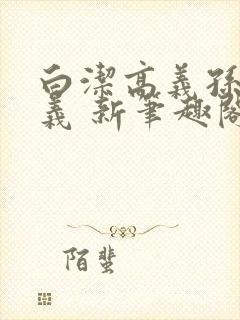 白潔高義孫
義 新筆趣閣
陌蜚